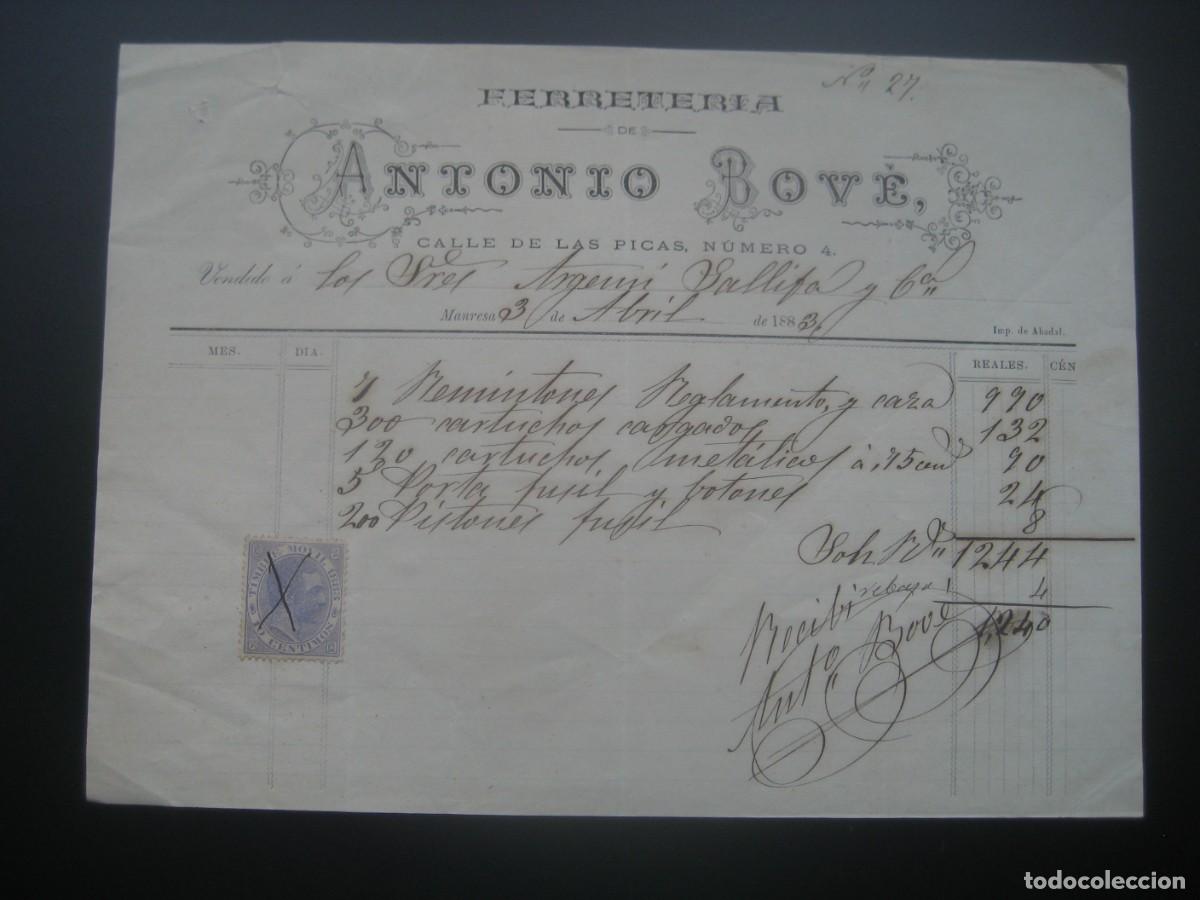 Nº 27.
FERRETERIA
DE
ANTONIO BOVÉ,
CALLE DE LAS PICAS, NÚMERO 4.
Vendido á los Sres Argemí Sallifa y Cª
Manresa 3 de Abril de 1883
Imp. de Abadal.
MES. DIA. REALES. CÉN
7 Remintones Reglamento, y caza 990
300 cartuchos cargados 132
120 cartuchos metálicos á 75 90
5 Porta fusil y botones 24
200 Pistones fusil 8
1244
rebaja 4
Recibí 1,240
Antº Bové
TIMBRE MOVIL 1883
10 CENTIMOS
todocoleccion